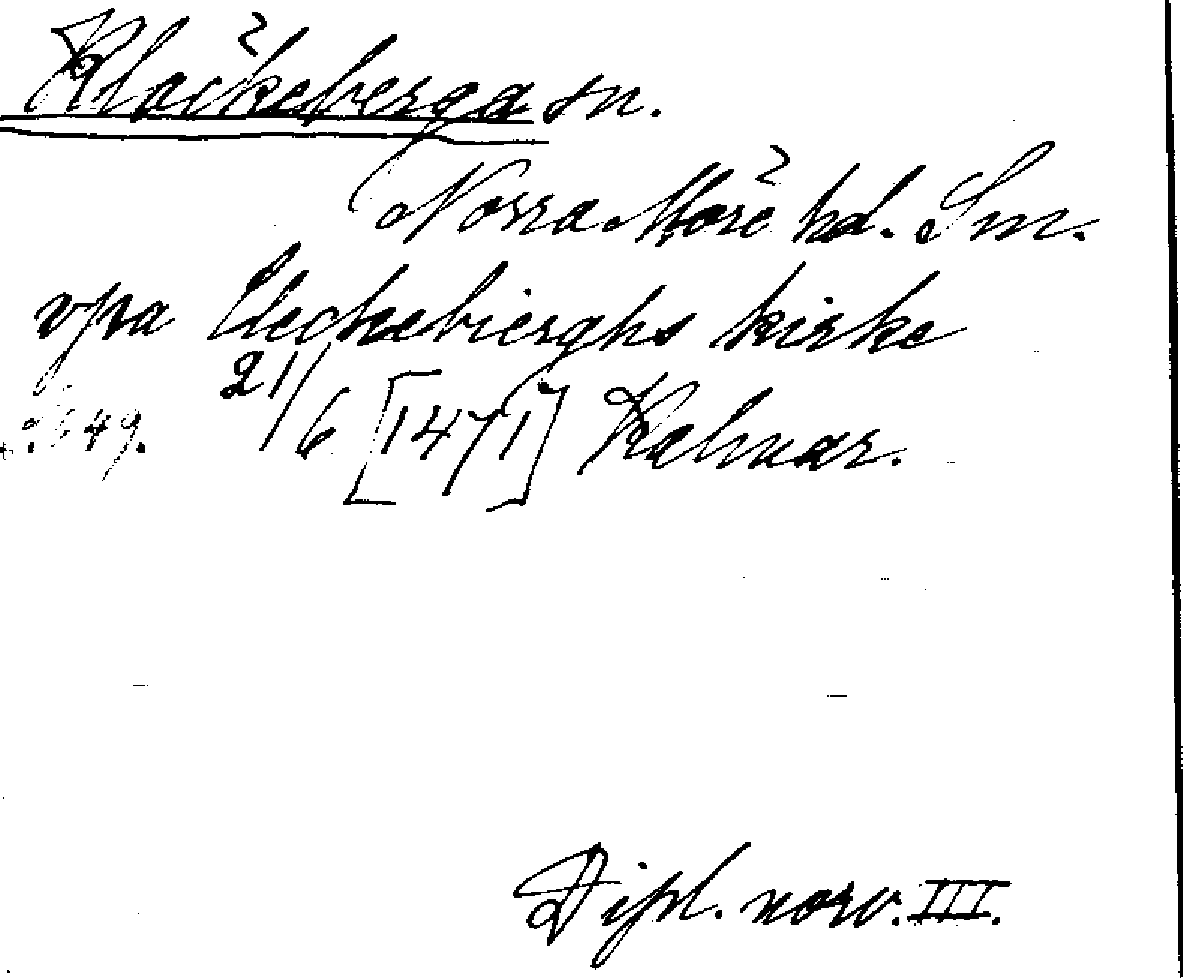 Kläckeberga sn.
Norra Möre hd. Sm.
vpa Cleckebierghs kirke
21/6 [1471] Kalmar.
Dipl. norv. III.